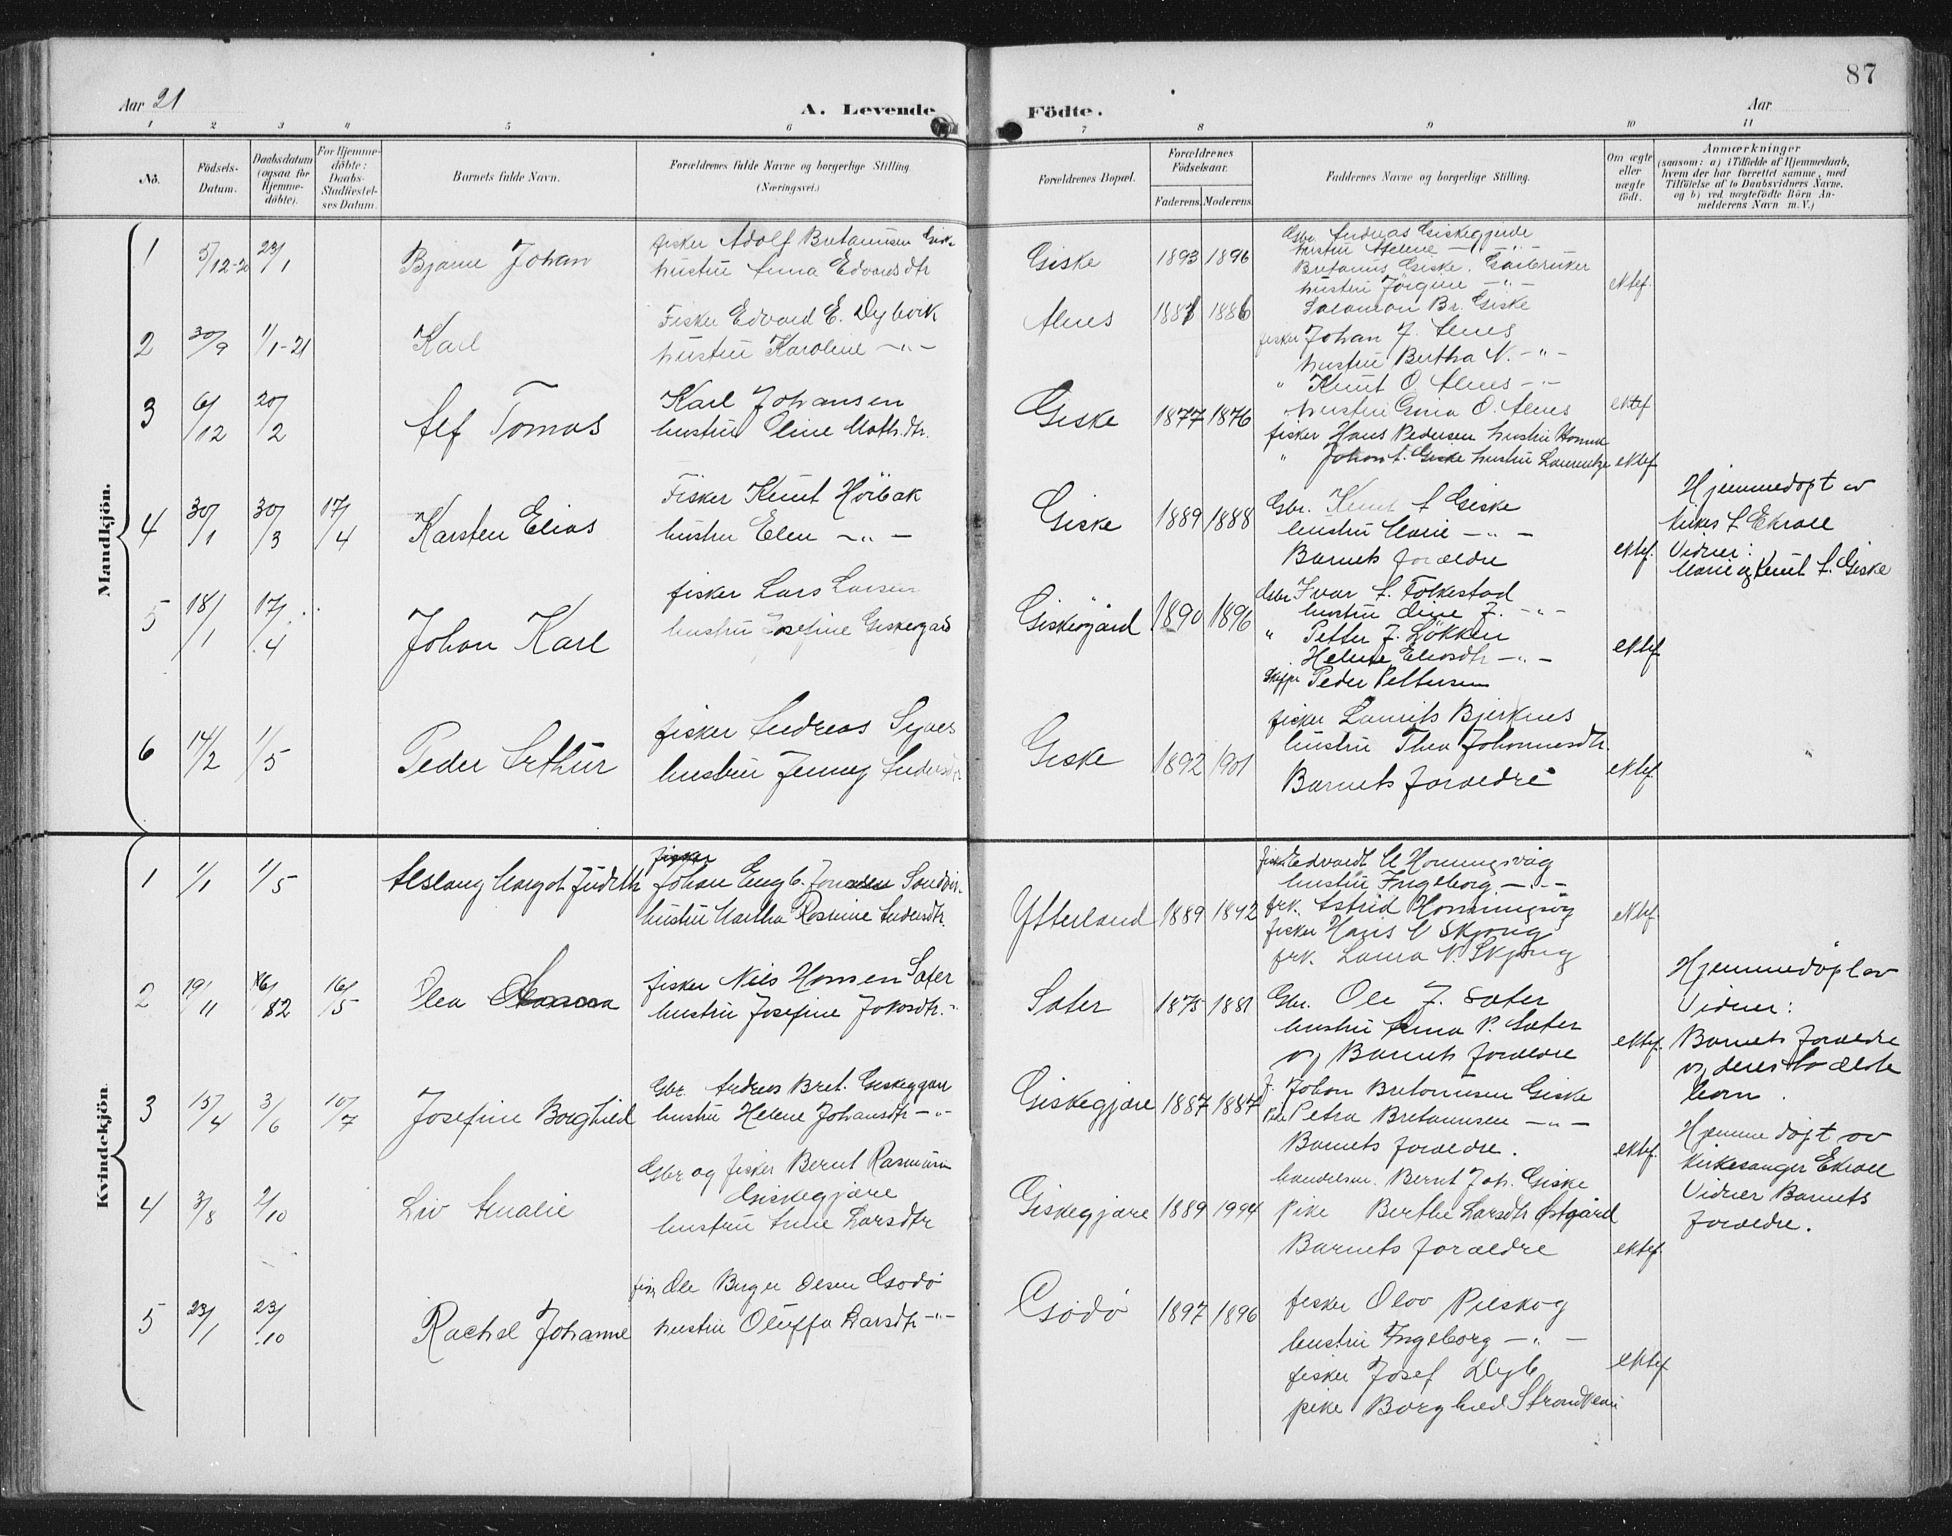 87
Aar 21
A. Levende
Födte.
Aar
1 2 3 4 5 6 7 8 9 10 11
No.
Födsels-Datum.
Daabsdatum (ogsaa for Hjemme-döbte).
For Hjemme-döbte: Daabs-Stadfæstel-ses Datum.
Barnets fulde Navn.
Forældrenes fulde Navne og borgerlige Stilling.
(Næringsvei.)
Forældrenes Bopæl.
Forældrenes Födselsaar.
Faderens. Moderens.
Faddernes Navne og borgerlige Stilling.
Om ægte eller uægte födt.
Anmærkninger
(saasom: a) i Tilfælde af Hjemmedaab,
hvem der har forrettet samme, med
Tilföielse af to Daabsvidners Navne.
og b) ved uægtefödte Börn An-
melderens Navn m. V.)
Mandkjön.
1 5/12-20 23/1 Bjarne Johan
fisker Adolf Bretanusen Giske
hustru Anna Edvardsdtr
Giske 1893 1896
Gbr. Andreas Giskegjerde
hustru Helene -"-
Bretanus Giske, Gårbruker
hustru Jörgine -"-
Salamon Br. Giske
ektef.
2 30/9 1/1-21 Karl
Fisker Edvard E. Dybvik
hustru Karoline -"-
Alnes 1881 1886
fisker Johan J. Alnes
hustru Bertha N. -"-
" Knut O. Alnes -"-
hustru Gina O. Alnes
ektef
3 6/12 20/2 Alf Tomas
Karl Johansen
hustru Eline Math.dtr.
Giske 1877 1876
fisker Hans Pedersen hustru
" Johan L. Giske hustru Laurentze
ektef
4 30/1 30/3 17/4 Karsten Elias
Fisker Knut Höibak
hustru Elen -"-
Giske 1889 1888
Gbr. Knut L Giske
hustru Marie -"-
Barnets foreldre
ektef.
Hjemmedöpt av
Kirkes. L Ekroll
Vidner:
Marie og Knut L. Giske
5 18/1 17/4 Johan Karl
fisker Lars Larsen
hustru Josefine Giskegård
Giskegård 1890 1896
Gbr Ivar L. Folkestad
hustru Line J. -"-
" Petter J. Lökken
Helene Eliasdtr -"-
Skipper Peder Pettersen
ektef
6 14/2 1/5 Peder Arthur
fisker Andreas
hustru Jenny Andersdtr
Giske 1892 1901
fisker Laurits Bjerknes
hustru Thea Johannesdtr.
Barnets foreldre
ektef.
Kvindekjön.
1 1/1 1/5 Aslaug Margot Judith
fisker
Johan Engb. Jonasen
hustru Martha Rosine Andersdtr.
Ytterland 1889 1892
fisk Edvardt A Honningsvåg
hustru Ingeborg -"-
frk. Astrid Honningsvåg
fisker Hans V Skjong
frk. Laura V. Skjong
ektef.
2 19/11 16/12 16/5 Olea
fisker Nils Hansen Sæter
hustru Josefine Jakobsdtr. -"-
Sæter 1875 1881
Gbr. Ole J. Sæter
hustru Anna P. Sæter
og Barnets foreldre
ektef.
Hjemmedöpt av
Vidner:
Barnets foreldre
og deres to ældste
barn.
3 15/4 3/6 10/7 Josefine Borghild
Gbr. Andreas Bret. Giskegjære
hustru Helene Johansdtr -"-
Giskegjære 1887 1887
Johan Bretanusen Giske
Pike Petra Bretanusen -"-
Barnets foreldre.
ektef.
Hjemme döpt av
Kirkesanger Ekroll
Vidner Barnets
foreldre.
4 3/8 2/10 Liv Amalie
Gbr og fisker Bernt Rasmusen
Giskegjære
hustru Anne Larsdtr
Giskegjære 1889 1994
handelsm. Bernt Joh. Giske
pike Berthe Larsdtr Østgård
Barnets foreldre
ektef.
5 23/1 23/10 Rachel Johanne
fisk Ole Birger Olsen Godö
hustru Oluffa Larsdtr -"-
Godö 1897 1896
fisker Olav Pilskog
hustru Ingeborg -"-
fisker Josef Dyb
pike Borghild
ektef